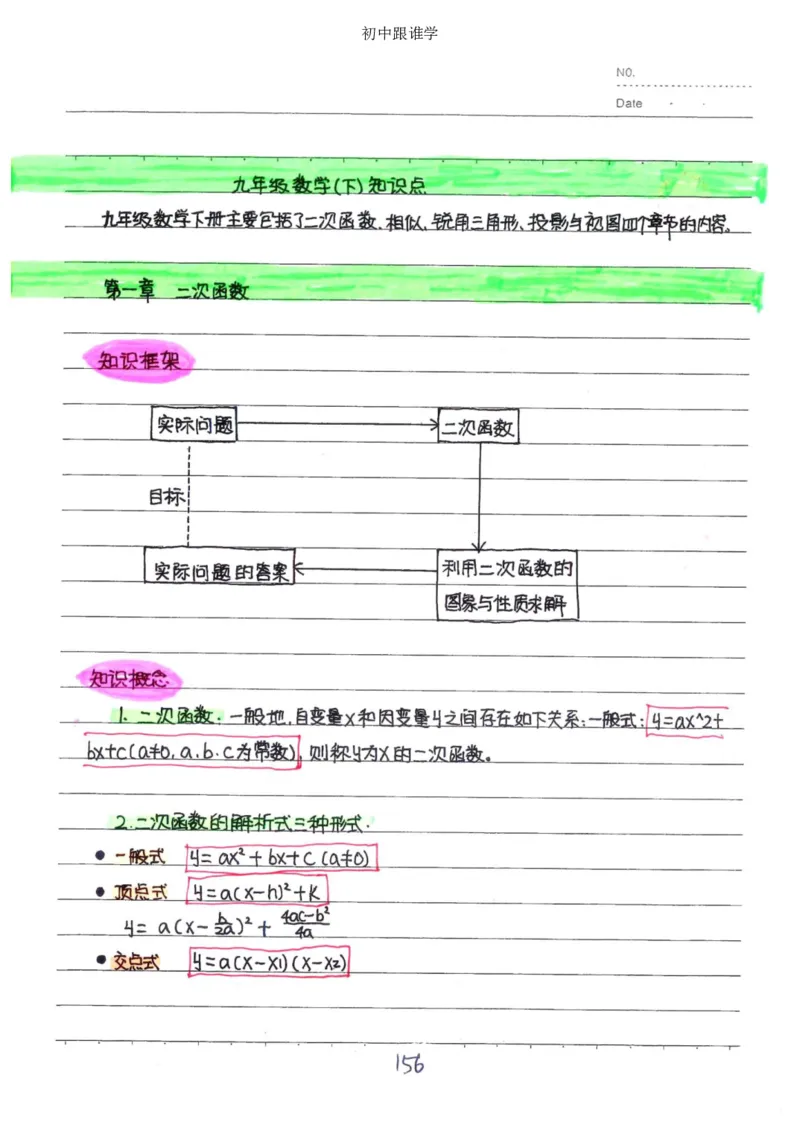 初中跟谁学
NO.
Date
九年级数学(下)知识点
九年级数学下册主要包括了二次函数、相似、锐用三角形、投影与视图四个章节的内容。
第一章 二次函数
知识框架
实际问题
二次函数
目标
实际问题的答案
利用二次函数的
图象与性质求解
知识概念
1. 二次函数：一般地,自变量x和因变量y之间存在如下关系:一般式:y=ax^2+
bx+c(a≠0,a.b.c为常数),则称y为x的二次函数。
2.二次函数的解析式三种形式.
● 一般式 y=ax²+bx+c(a≠0)
● 顶点式 y=a(x-h)²+k
y= a(x-b/2a)²+ 4ac-b²/4a
● 交点式 y=a(x-x1)(x-x2)
156